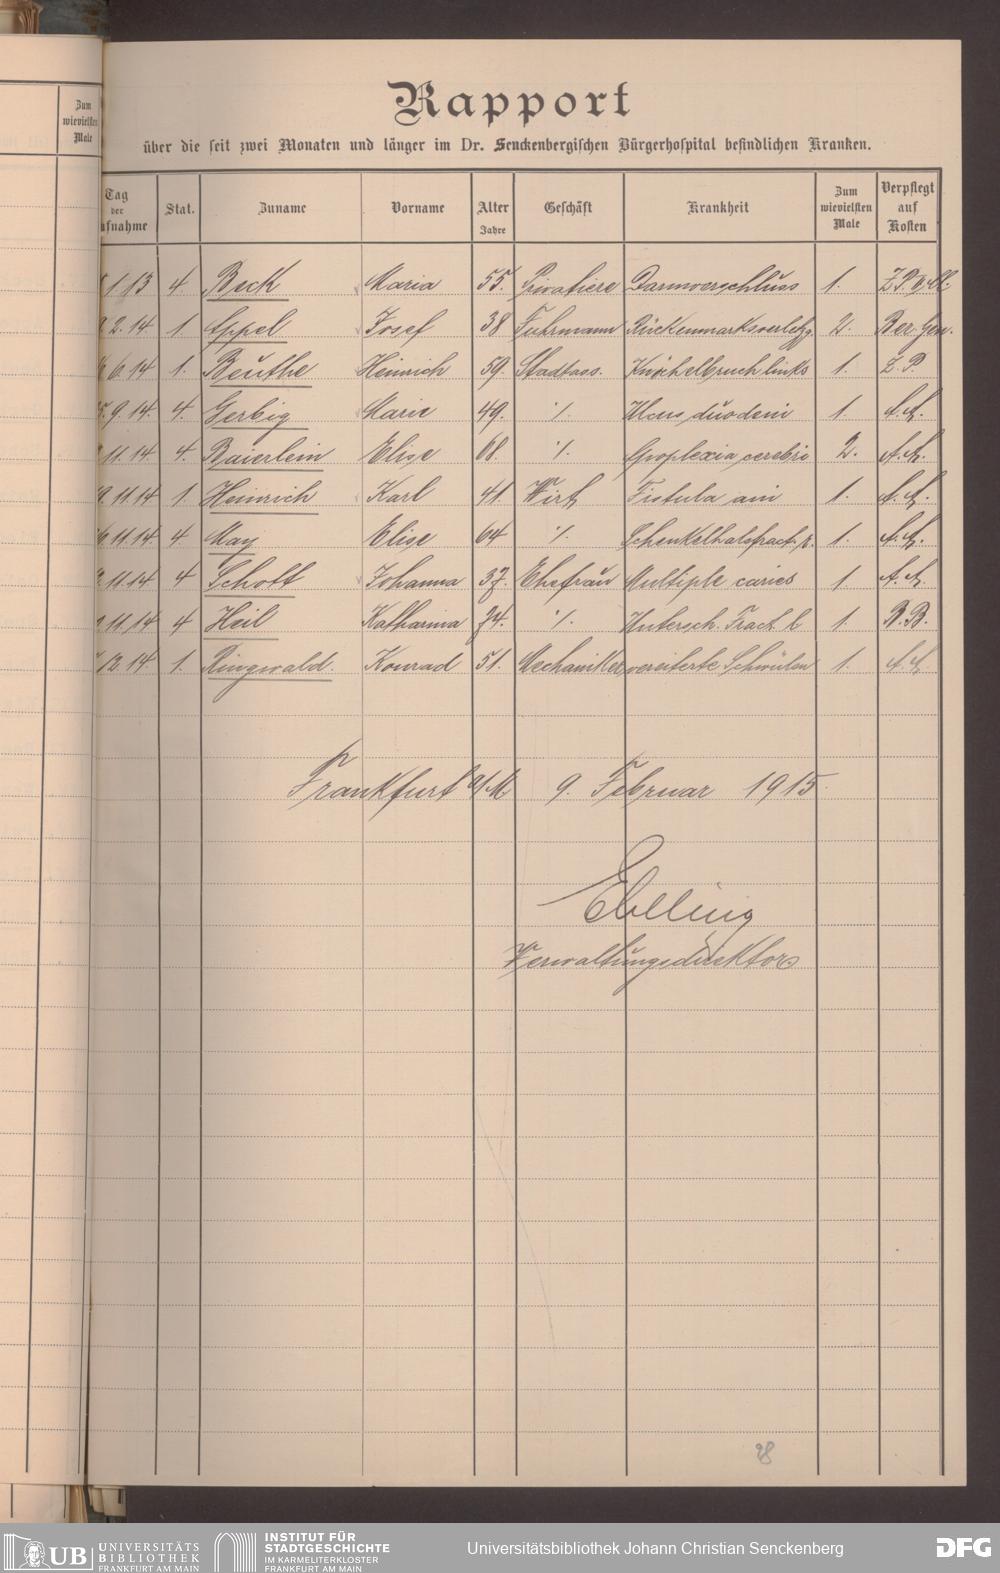 Zum
wievielsten
Male
Rapport
über die seit zwei Monaten und länger im Dr. Senckenbergischen Bürgerhospital befindlichen Kranken.
Tag der ufnahme Stat. Zuname Vorname Alter Jahre Geschäft Krankheit Zum wievielsten Male Verpflegt auf Kosten
1.13 4 Beck Maria 55. Privatiere Darmverschluss 1. Z.P.
2.14 1. Appel Josef 38 Fuhrmann Rückenmarksverletzg. 2. Ber. Gen.
6.14 1. Beuthe Heinrich 59. Stadtass. Knöchelbruch links 1. Z.P.
9.14. 4. Gerbig Marie 49. ./. Ulcus duodeni 1.
11.14. 4. Baierlein Elise 68. ./. Apoplexia cerebri 2.
11.14 1. Heinrich Karl 41. Wirth Fistula ani 1.
11.14 4 May Elise 64 ./. Schenkelhalsfract. r. 1.
11.14 4 Schott Johanna 37. Ehefrau Multiple caries 1.
11.14 4 Heil Katharina 74. ./. Untersch. Fract. l. 1. B.B.
12.14 1. Ringwald. Konrad 51. Mechaniker vereiterte Schwielen 1.
Frankfurt a/M 9. Februar 1915.
Ebeling
Verwaltungsdirektor
28
UB UNIVERSITÄTS
BIBLIOTHEK
FRANKFURT AM MAIN
INSTITUT FÜR
STADTGESCHICHTE
IM KARMELITERKLOSTER
FRANKFURT AM MAIN
Universitätsbibliothek Johann Christian Senckenberg
DFG